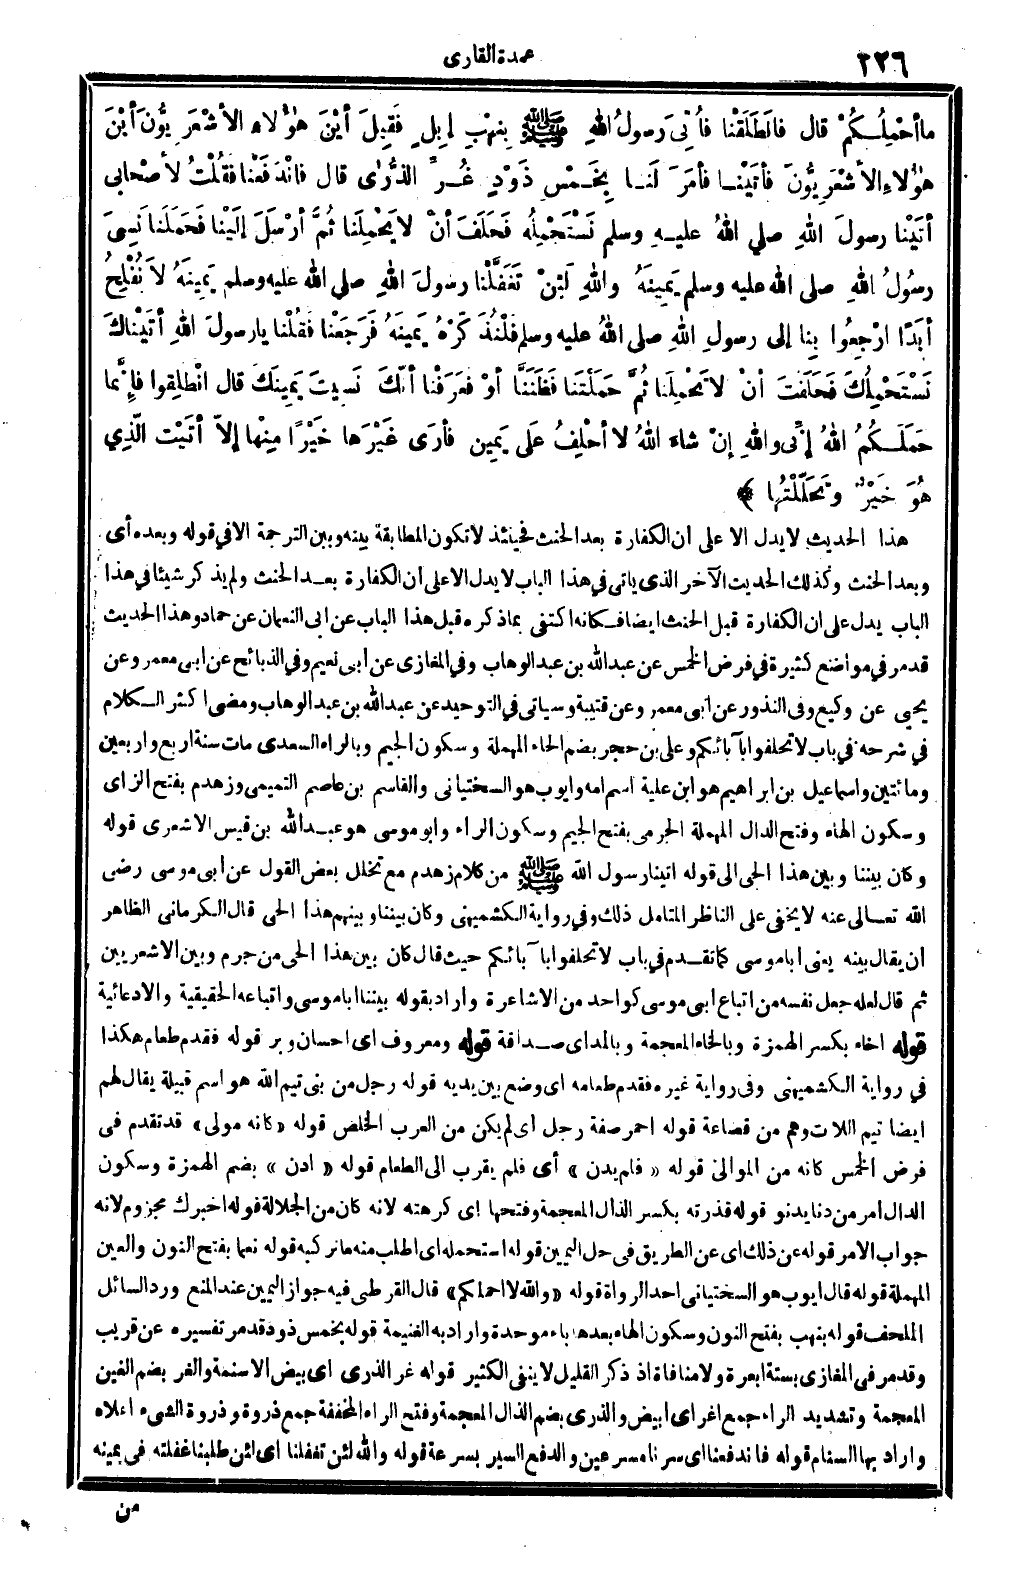 ٢٢٦
عمدة القارى
ما أحْمِلُكُمْ قال فانْطَلَقْنا فأُتِىَ رسولُ اللهِ ﷺ بِنَهْبِ إبِلٍ فَقِيلَ أيْنَ هٰؤُلاءِ الأشْعَرِيُّونَ أيْنَ
هٰؤُلاءِ الأشْعَرِيُّونَ فأتَيْنا فأمَرَ لَنا بِخَمْسِ ذَوْدٍ غُرِّ الذُّرٰى قال فانْدَفَعْنا فقُلْتُ لأصْحابى
أتَيْنا رسولَ اللهِ صلي اللهُ عليه وسلم نَسْتَحْمِلُه فَحَلَفَ أنْ لا يَحْمِلَنا ثُمَّ أرْسَلَ إلَيْنا فَحَمَلَنا نَسِىَ
رسُولُ اللهِ صلى الله عليه وسلم يَمِينَهُ واللهِ لَئِنْ تَغَفَّلْنا رسولَ اللهِ صلي الله عليه وسلم يَمِينَهُ لا نُفْلِحُ
أبَدًا ارْجِعُوا بِنا إلى رسولِ اللهِ صلى اللهُ عليه وسلم فَلْنُذَكِّرْهُ يَمِينَهُ فَرَجَعْنا فَقُلْنا يا رسولَ اللهِ أتَيْناكَ
نَسْتَحْمِلُكَ فَحَلَفْتَ أنْ لا تَحْمِلَنا ثُمَّ حَمَلْتَنا فَظَنَنَّا أوْ فَعَرَفْنا أنَّكَ نَسِيتَ يَمِينَكَ قال انْطَلِقوا فإنَّما
حَمَلَكُمُ اللهُ إنِّى واللهِ إنْ شاءَ اللهُ لا أحْلِفُ علَى يَمِينٍ فأرَى غَيْرَها خَيْرًا مِنْها إلاَّ أتَيْتُ الَّذِي
هُوَ خَيْرٌ وتَحَلَّلْتُها ﴾
هذا الحديث لا يدل الا على ان الكفارة بعد الحنث فحينئذ لا تكون المطابقة بينه وبين الترجمة الا في قوله وبعده أى
وبعد الحنث وكذلك الحديث الآخر الذى ياتى في هذا الباب لا يدل الا على ان الكفارة بعد الحنث ولم يذكر شيئا في هذا
الباب يدل على ان الكفارة قبل الحنث ايضا فكانه اكتفى بما ذكره قبل هذا الباب عن ابى النعمان عن حماد وهذا الحديث
قد مر في مواضع كثيرة في فرض الخمس عن عبد الله بن عبد الوهاب وفي المغازى عن ابى نعيم وفي الذبائح عن ابى معمر وعن
يحيى عن وكيع وفى النذور عن ابى معمر وعن قتيبة وسياتى في التوحيد عن عبد الله بن عبد الوهاب ومضى اكثر الكلام
في شرحه في باب لا تحلفوا بآبائكم وعلى بن حجر بضم الحاء المهملة وسكون الجيم وبالراء السعدى مات سنة اربع واربعين
ومائتين واسماعيل بن ابراهيم هو ابن علية اسم امه وايوب هو السختيانى والقاسم بن عاصم التميمى وزهدم بفتح الزاى
وسكون الهاء وفتح الدال المهملة الجرمى بفتح الجيم وسكون الراء وابو موسى هو عبد الله بن قيس الاشعرى قوله
وكان بيننا وبين هذا الحى الى قوله اتينا رسول الله ﷺ من كلام زهدم مع تخلل بعض القول عن ابى موسى رضى
الله تعالى عنه لا يخفى على الناظر المتامل ذلك وفي رواية الكشميهنى وكان بيننا وبينهم هذا الحى قال الكرمانى الظاهر
ان يقال بينه يعنى ابا موسى كما تقدم في باب لا تحلفوا بآبائكم حيث قال كان بين هذا الحى من جرم وبين الاشعريين
ثم قال لعله جعل نفسه من اتباع ابى موسى كواحد من الاشاعرة واراد بقوله بيننا ابا موسى واتباعه الحقيقية والادعائية
قوله اخاء بكسر الهمزة وبالخاء المعجمة وبالمد اى صداقة قوله ومعروف اى احسان وبر قوله فقدم طعام هكذا
في رواية الكشميهنى وفى رواية غيره فقدم طعامه اى وضع بين يديه قوله رجل من بنى تيم الله هو اسم قبيلة يقال لهم
ايضا تيم اللات وهم من قضاعة قوله احمر صفة رجل اى لم يكن من العرب الخلص قوله «كانه مولى» قد تقدم فى
فرض الخمس كانه من الموالى قوله « فلم يدن » أى فلم يقرب الى الطعام قوله « ادن » بضم الهمزة وسكون
الدال امر من دنا يدنو قوله قذرته بكسر الذال المعجمة وفتحها اى كرهته لانه كان من الجلالة قوله اخبرك مجزوم لانه
جواب الامر قوله عن ذلك اى عن الطريق فى حل اليمين قوله استحمله اى اطلب منه ما نركبه قوله نعما بفتح النون والعين
المهملة قوله قال ايوب هو السختيانى احد الرواة قوله «والله لا احملكم» قال القرطبى فيه جواز اليمين عند المنع ورد السائل
الملحف قوله بنهب بفتح النون وسكون الهاء بعدها باء موحدة واراد به الغنيمة قوله بخمس ذود قد مر تفسيره عن قريب
وقد مر فى المغازى بستة ابعرة ولا منافاة اذ ذكر القليل لا ينفى الكثير قوله غر الذرى اى بيض الاسنمة والغر بضم الغين
المعجمة وتشديد الراء جمع اغر اى ابيض والذرى بضم الذال المعجمة وفتح الراء المخففة جمع ذروة وذروة الشىء اعلاه
واراد بها السنام قوله فاندفعنا اى سرنا مسرعين والدفع السير بسرعة قوله والله لئن تغفلنا اى لئن طلبنا غفلته فى يمينه
من